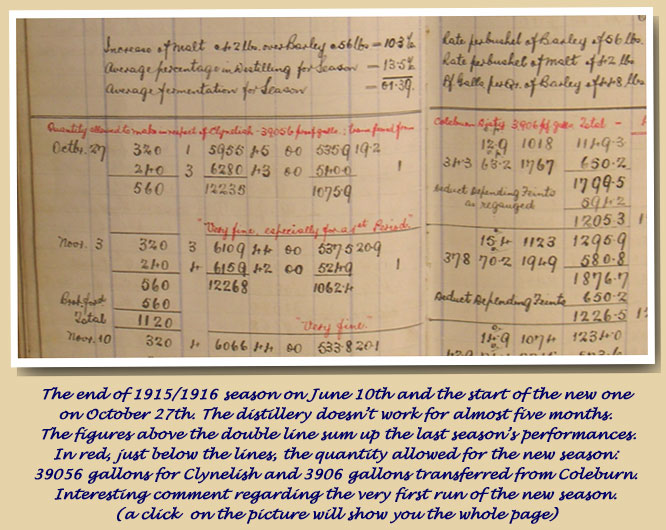 Increase of Malt @ 42 lbs. over Barley @ 56 lbs = 10.3%
Average percentage in Distilling for Season = 13.5%
Average fermentation for Season = 61.39.
Rate per bushel of Barley of 56 lbs
Rate per bushel of Malt of 42 lbs
Pf Galls per Qr. of Barley of 448 lbs
Quantity allowed to make in respect of Clynelish - 39056 proof galls: transferred from
Coleburn 3906 pf galls Total -
Octbr. 27 320 1 5955 45 00 5359 19.2
240 3 6280 43 00 5400 1
560 12235 10759
12.9 1018 1149.3
34.3 63.2 1767 650.2
1799.5
Deduct Depending Feints
as regauged 594.2
1205.3
"Very fine, especially for a 1st Period."
Novr. 3 320 3 6109 44 00 5375 20.9
240 4 6159 42 00 5249 1
560 12268 10624
15.4 1123 1295.9
378 70.2 1949 580.8
1876.7
Deduct Depending Feints 650.2
1226.5
560
Total 1120
"Very fine."
Novr. 10 320 4 6066 44 00 5338 20.1
14.9 1074 1234.0
The end of 1915/1916 season on June 10th and the start of the new one
on October 27th. The distillery doesn't work for almost five months.
The figures above the double line sum up the last season's performances.
In red, just below the lines, the quantity allowed for the new season:
39056 gallons for Clynelish and 3906 gallons transferred from Coleburn.
Interesting comment regarding the very first run of the new season.
(a click on the picture will show you the whole page)